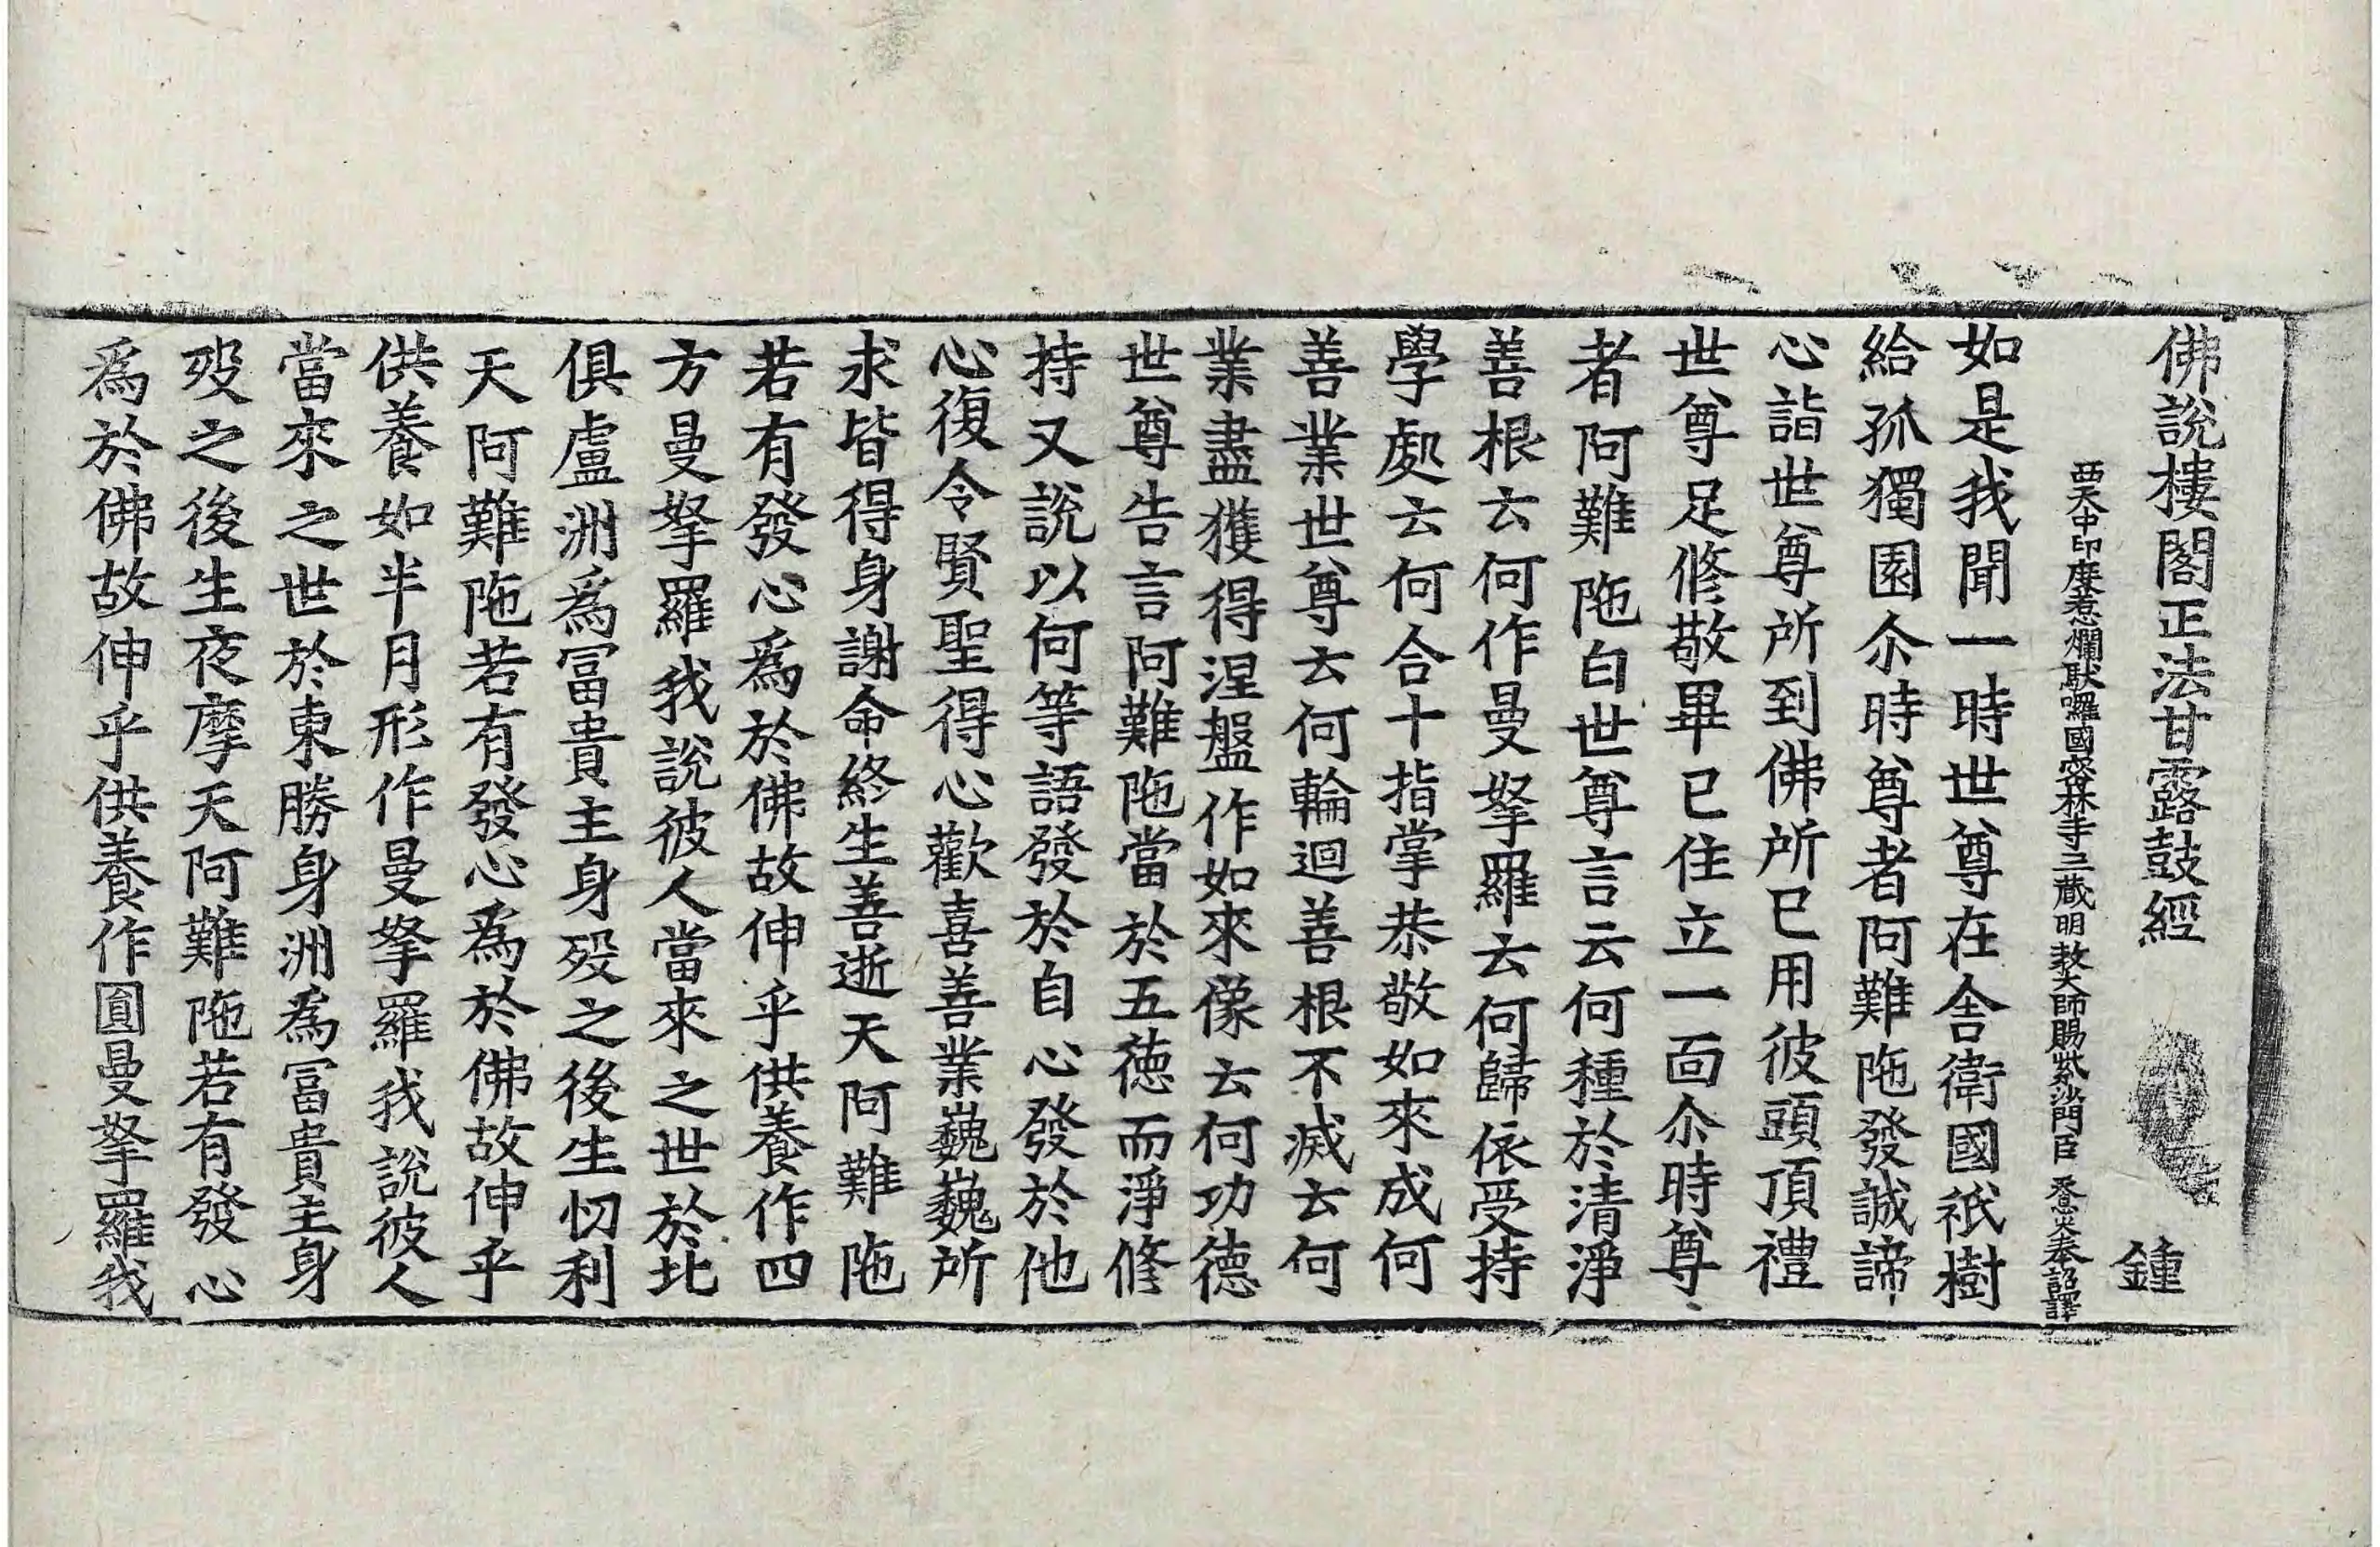 佛說樓閣正法甘露鼓經 鍾
西天中印度惹爛馱囉國密林寺三藏明教大師賜紫沙門臣 天息災奉 詔譯
如是我聞一時世尊在舍衛國祇樹
給孤獨園尒時尊者阿難陁發誠諦
心詣世尊所到佛所已用彼頭頂禮
世尊足修敬畢已住立一面尒時尊
者阿難陁白世尊言云何種於清淨
善根云何作曼拏羅云何歸依受持
學處云何合十指掌恭敬如來成何
善業世尊云何輪迴善根不滅云何
業盡獲得涅盤作如來像云何功德
世尊告言阿難陁當於五德而淨修
持又說以何等語發於自心發於他
心復令賢聖得心歡喜善業巍巍所
求皆得身謝命終生善逝天阿難陁
若有發心爲於佛故伸乎供養作四
方曼拏羅我說彼人當來之世於北
俱盧洲爲冨貴主身歿之後生忉利
天阿難陁若有發心爲於佛故伸乎
供養如半月形作曼拏羅我說彼人
當來之世於東勝身洲爲冨貴主身
歿之後生夜摩天阿難陁若有發心
爲於佛故伸乎供養作圓曼拏羅我